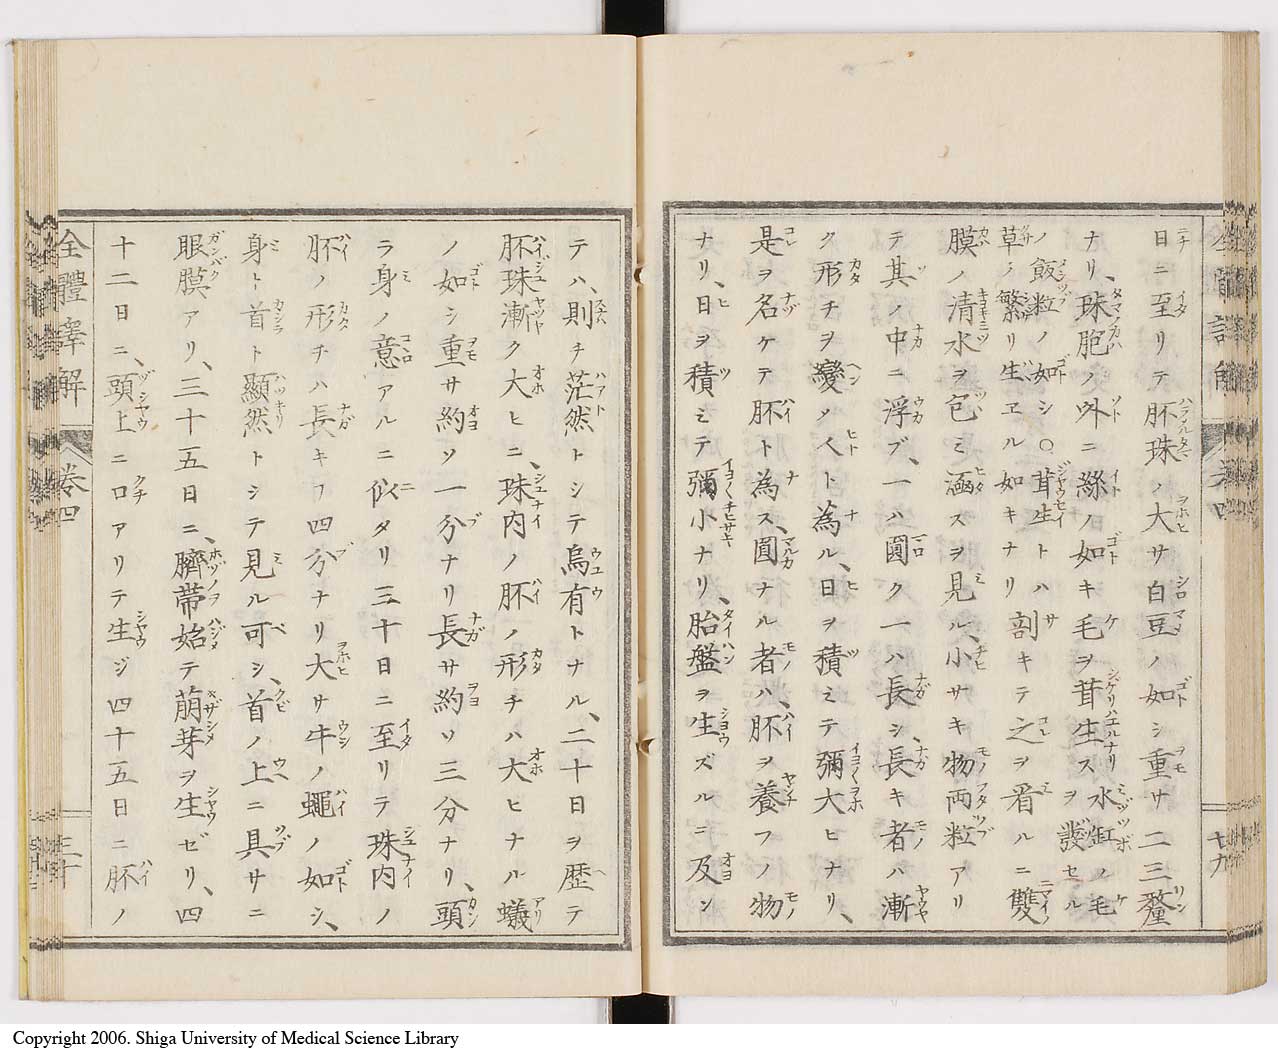 日ニ至リテ胚珠ノ大サ白豆ノ如シ重サ二三釐
ナリ、珠胞ノ外ニ絲ノ如キ毛ヲ茸生ス水缸ノ毛ヲ發セル
ノ飯粒ノ如シ○茸生トハ
草ノ繁リ生ヱル如キナリ剖キテ之ヲ看ルニ雙
膜ノ清水ヲ包ミ涵スヲ見ル、小サキ物両粒アリ
テ其ノ中ニ浮ブ、一ハ圓ク一ハ長シ、長キ者ハ漸
ク形チヲ變ノ人ト為ル、日ヲ積ミテ彌大ヒナリ、
是ヲ名ケテ胚ト為ス、圓ナル者ハ、胚ヲ養フノ物
ナリ、日ヲ積ミテ彌小ナリ、胎盤ヲ生ズルニ及ン
テハ、則チ茫然トシテ烏有トナル、二十日ヲ歴テ
胚珠漸ク大ヒニ、珠内ノ胚ノ形チハ大ヒナル蟻
ノ如シ重サ約ソ一分ナリ長サ約ソ三分ナリ、頭
ラ身ノ意アルニ似タリ三十日ニ至リテ珠内ノ
胚ノ形チハ長キフ四分ナリ大サ牛ノ蠅ノ如シ、
身ト首ト顯然トシテ見ル可シ、首ノ上ニ具サニ
眼膜アリ、三十五日ニ、臍帯始テ萠芽ヲ生ゼリ、四
十二日ニ、頭上ニ口アリテ生ジ四十五日ニ胚ノ
全體譯解
卷四
三十
Copyright 2006. Shiga University of Medical Science Library